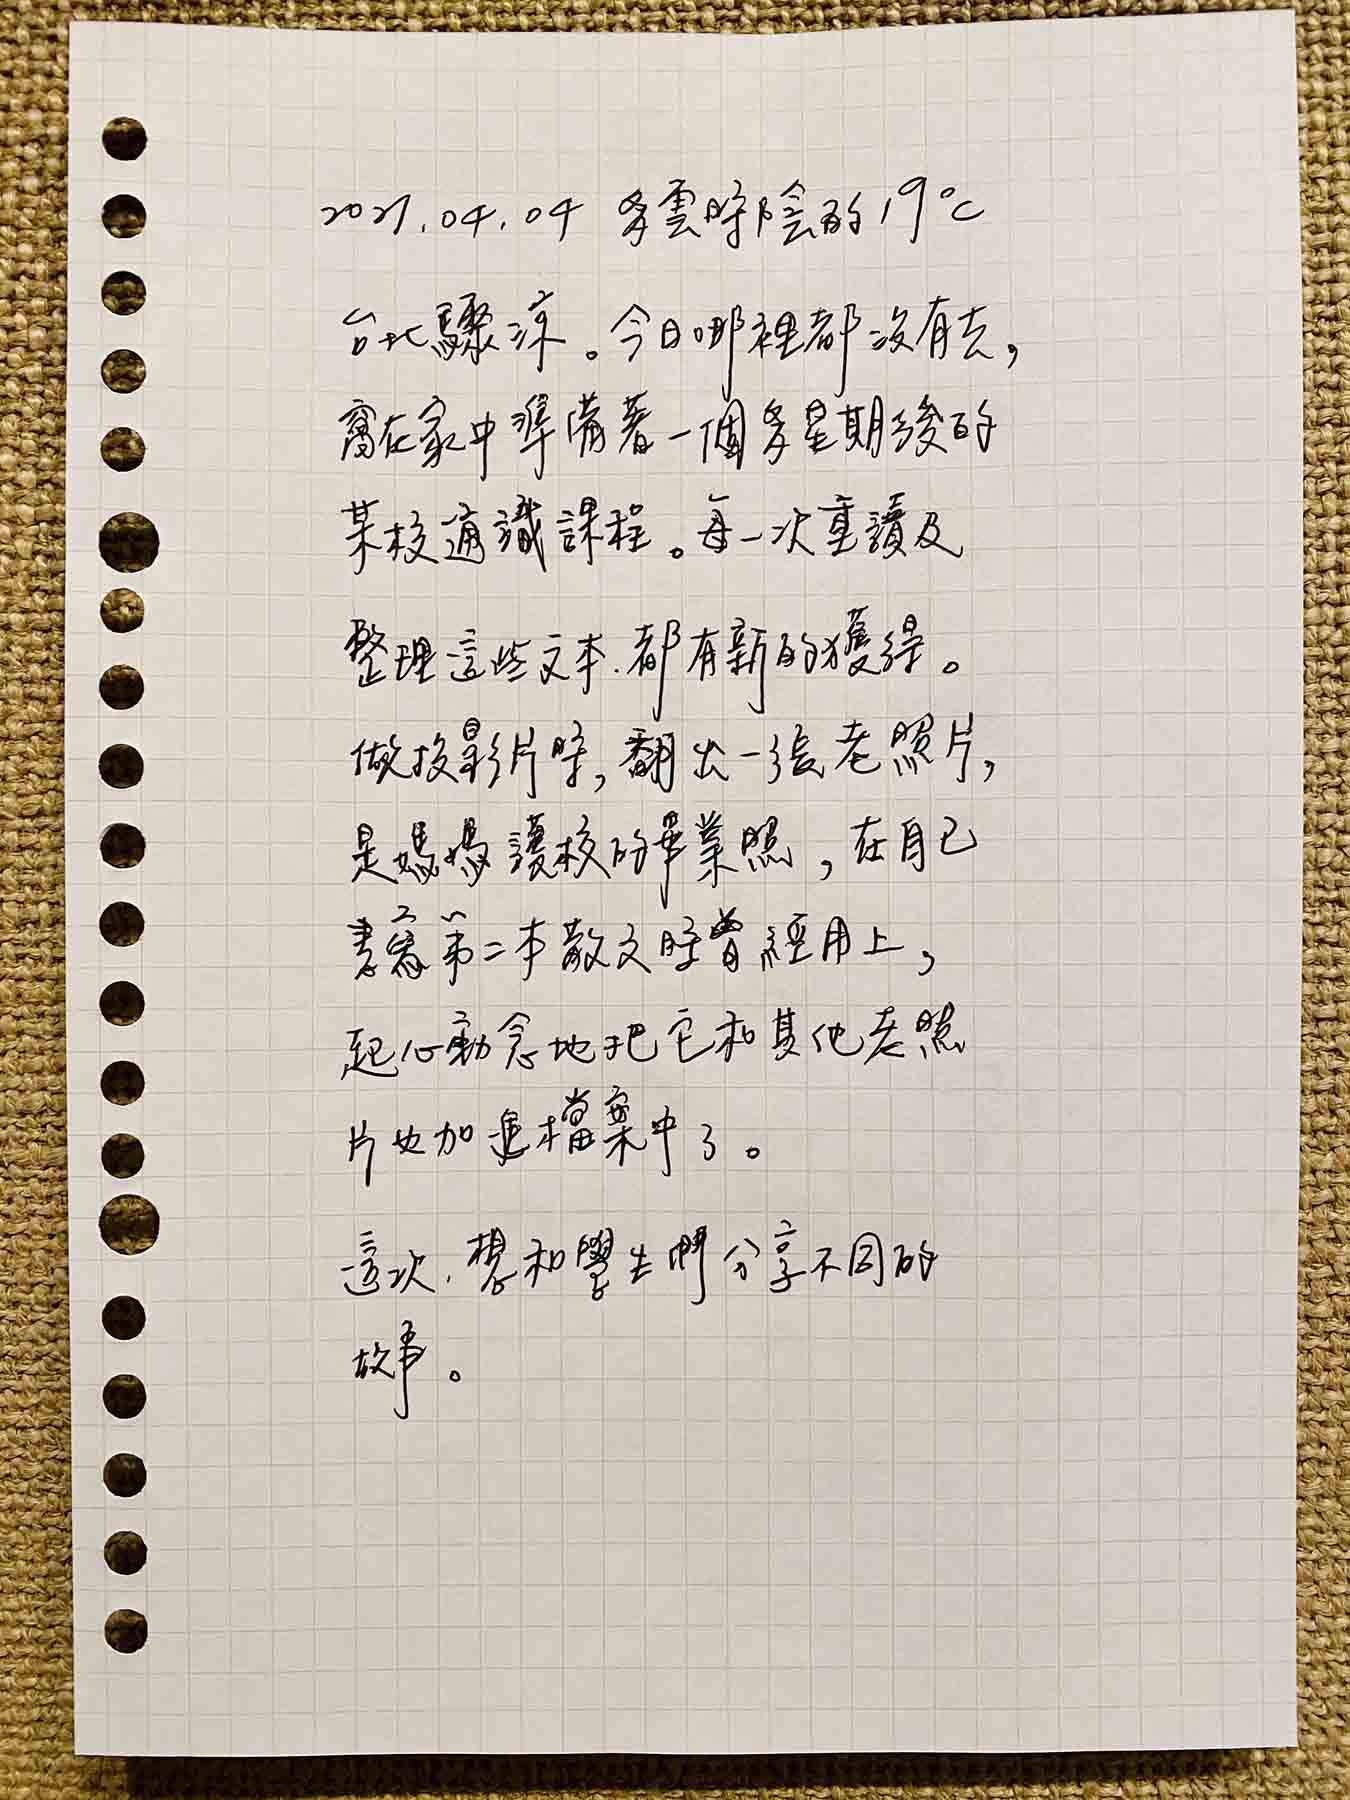 2021.04.04 多雲時陰的19°C
台北驟涼。今日哪裡都沒有去,
窩在家中準備著一個多星期後的
某校通識課程。每一次重讀及
整理這些文本.都有新的獲得。
做投影片時,翻出一張老照片,
是媽媽護校的畢業照,在自己
書寫第二本散文時曾經用上,
起心動念地把它和其他老照
片也加進檔案中了。
這次.想和學生們分享不同的
故事。